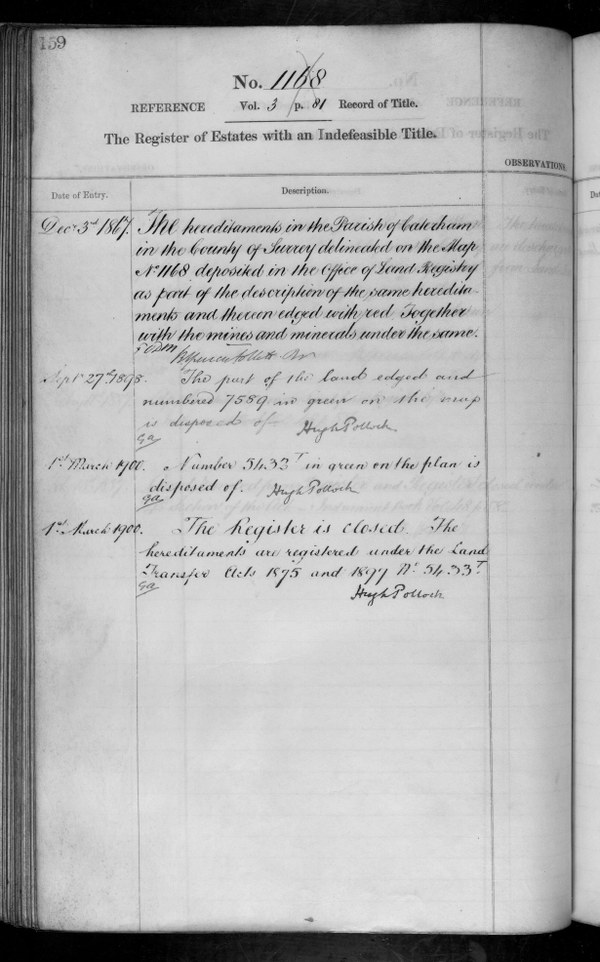 159
No. 1168
REFERENCE Vol. 3 p. 81 Record of Title.
The Register of Estates with an Indefeasible Title.
OBSERVATIONS.
Date of Entry.
Description.
Decr 3rd 1867. The hereditaments in the Parish of Caterham
in the County of Surrey delineated on the Map
No 1168 deposited in the Office of Land Registry
as part of the description of the same heredita-
ments and thereon edged with red Together
with the mines and minerals under the same.
Septr 27th 1898. The part of the land edged and
numbered 7589 in green on the map
is disposed of
Hugh Pollock
1st March 1900. Number 5433T in green on the plan is
disposed of. Hugh Pollock
1st March 1900. The Register is closed. The
hereditaments are registered under the Land
Transfer Acts 1875 and 1897 No 5433T.
Hugh Pollock